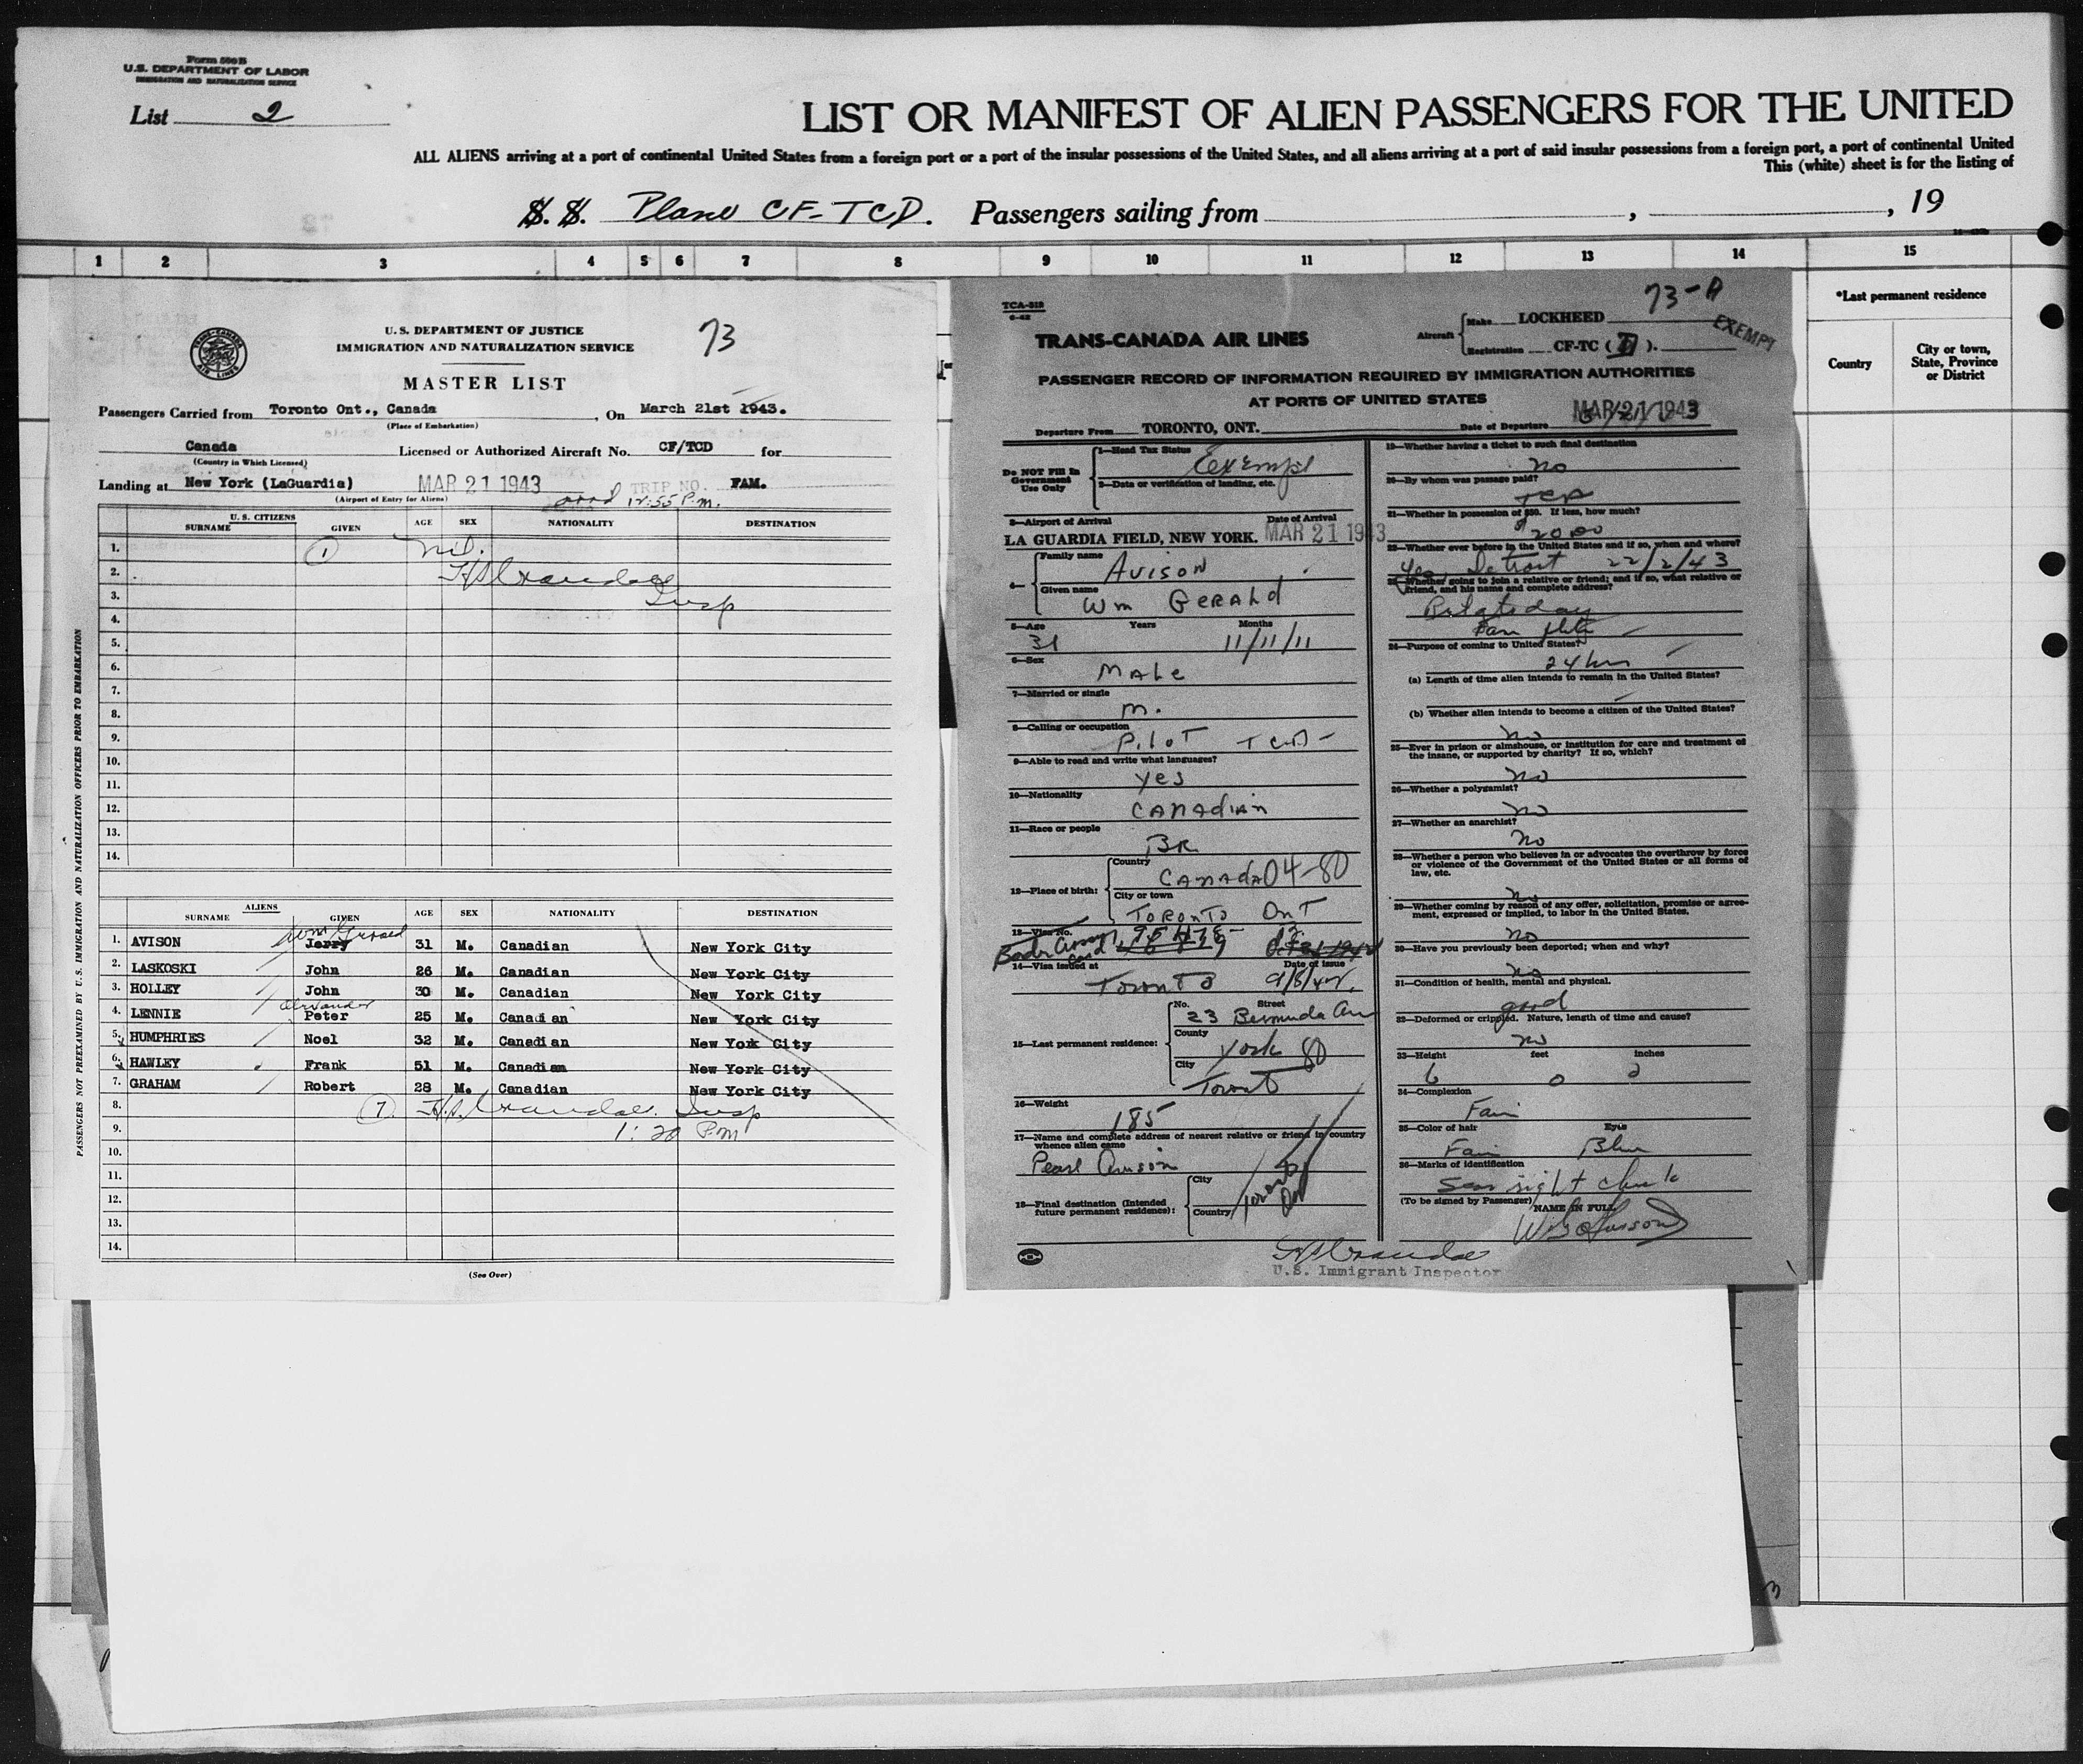 Form 500 B
U.S. DEPARTMENT OF LABOR
IMMIGRATION AND NATURALIZATION SERVICE
List 2
LIST OR MANIFEST OF ALIEN PASSENGERS FOR THE UNITED
ALL ALIENS arriving at a port of continental United States from a foreign port or a port of the insular possessions of the United States, and all aliens arriving at a port of said insular possessions from a foreign port, a port of continental United
This (white) sheet is for the listing of
S. S. Plane CF-TCD. Passengers sailing from , , 19
1 2 3 4 5 6 7 8 9 10 11 12 13 14 15
*Last permanent residence
Country
City or town, State, Province or District
TRANS-CANADA AIR LINES
U. S. DEPARTMENT OF JUSTICE
IMMIGRATION AND NATURALIZATION SERVICE
73
MASTER LIST
Passengers Carried from Toronto Ont., Canada , On March 21st 1943.
(Place of Embarkation)
Canada Licensed or Authorized Aircraft No. CF/TCD for
(Country in Which Licensed)
Landing at New York (LaGuardia) MAR 21 1943 TRIP NO. FAM.
(Airport of Entry for Aliens) arrd 12:55 P.m.
U. S. CITIZENS
SURNAME GIVEN AGE SEX NATIONALITY DESTINATION
1. 1 nil.
2.
3. Insp
4.
5.
6.
7.
8.
9.
10.
11.
12.
13.
14.
PASSENGERS NOT PREEXAMINED BY U. S. IMMIGRATION AND NATURALIZATION OFFICERS PRIOR TO EMBARKATION
ALIENS
SURNAME GIVEN AGE SEX NATIONALITY DESTINATION
1. AVISON Jerry 31 M. Canadian New York City
2. LASKOSKI John 26 M. Canadian New York City
3. HOLLEY John 30 M. Canadian New York City
4. LENNIE Peter 25 M. Canadian New York City
5. HUMPHRIES Noel 32 M. Canadian New York City
6. HAWLEY Frank 51 M. Canadian New York City
7. GRAHAM Robert 28 M. Canadian New York City
8. 7 Insp
9. 1:20 P.m
10.
11.
12.
13.
14.
(See Over)
TCA-312
6-42
73-A
EXEMPT
TRANS-CANADA AIR LINES
Aircraft Make LOCKHEED
Registration CF-TC (D).
PASSENGER RECORD OF INFORMATION REQUIRED BY IMMIGRATION AUTHORITIES
AT PORTS OF UNITED STATES
Departure From TORONTO, ONT. Date of Departure MAR 21 1943
Do NOT Fill In
Government
Use Only
1—Head Tax Status
Exempt
2—Data or verification of landing, etc.
3—Airport of Arrival Date of Arrival
LA GUARDIA FIELD, NEW YORK. MAR 21 1943
4— Family name
Avison
Given name
Wm GERALd
5—Age Years Months
31 11/11/11
6—Sex
MALe
7—Married or single
m.
8—Calling or occupation
PiloT TCA
9—Able to read and write what languages?
yes
10—Nationality
CANAdiAn
11—Race or people
BR
12—Place of birth: Country
CANAdA 04-80
City or town
TORONTO OnT
13—Visa No.
14—Visa issued at Date of Issue
Toronto 9/8/42.
15—Last permanent residence: No. Street
23 Bermuda Av
County
York 80
City
Toronto
16—Weight
185
17—Name and complete address of nearest relative or friend in country
whence alien came
Pearl Avison
18—Final destination (Intended
future permanent residence): City
Country
Toronto
Ont
19—Whether having a ticket to such final destination
no
20—By whom was passage paid?
TCA
21—Whether in possession of $50. If less, how much?
$20.00
22—Whether ever before in the United States and if so, when and where?
Yes Detroit 22/2/43
23—Whether going to join a relative or friend; and if so, what relative or
friend, and his name and complete address?
24—Purpose of coming to United States?
24 hrs
(a) Length of time alien intends to remain in the United States?
(b) Whether alien intends to become a citizen of the United States?
no
25—Ever in prison or almshouse, or institution for care and treatment of
the insane, or supported by charity? If so, which?
no
26—Whether a polygamist?
no
27—Whether an anarchist?
no
28—Whether a person who believes in or advocates the overthrow by force
or violence of the Government of the United States or all forms of
law, etc.
no
29—Whether coming by reason of any offer, solicitation, promise or agree-
ment, expressed or implied, to labor in the United States.
no
30—Have you previously been deported; when and why?
no
31—Condition of health, mental and physical.
good
32—Deformed or crippled. Nature, length of time and cause?
no
33—Height feet inches
6 0
34—Complexion
Fair
35—Color of hair Eyes
Fair Blue
36—Marks of identification
Scar right cheek
(To be signed by Passenger) NAME IN FULL
U.S. Immigrant Inspector